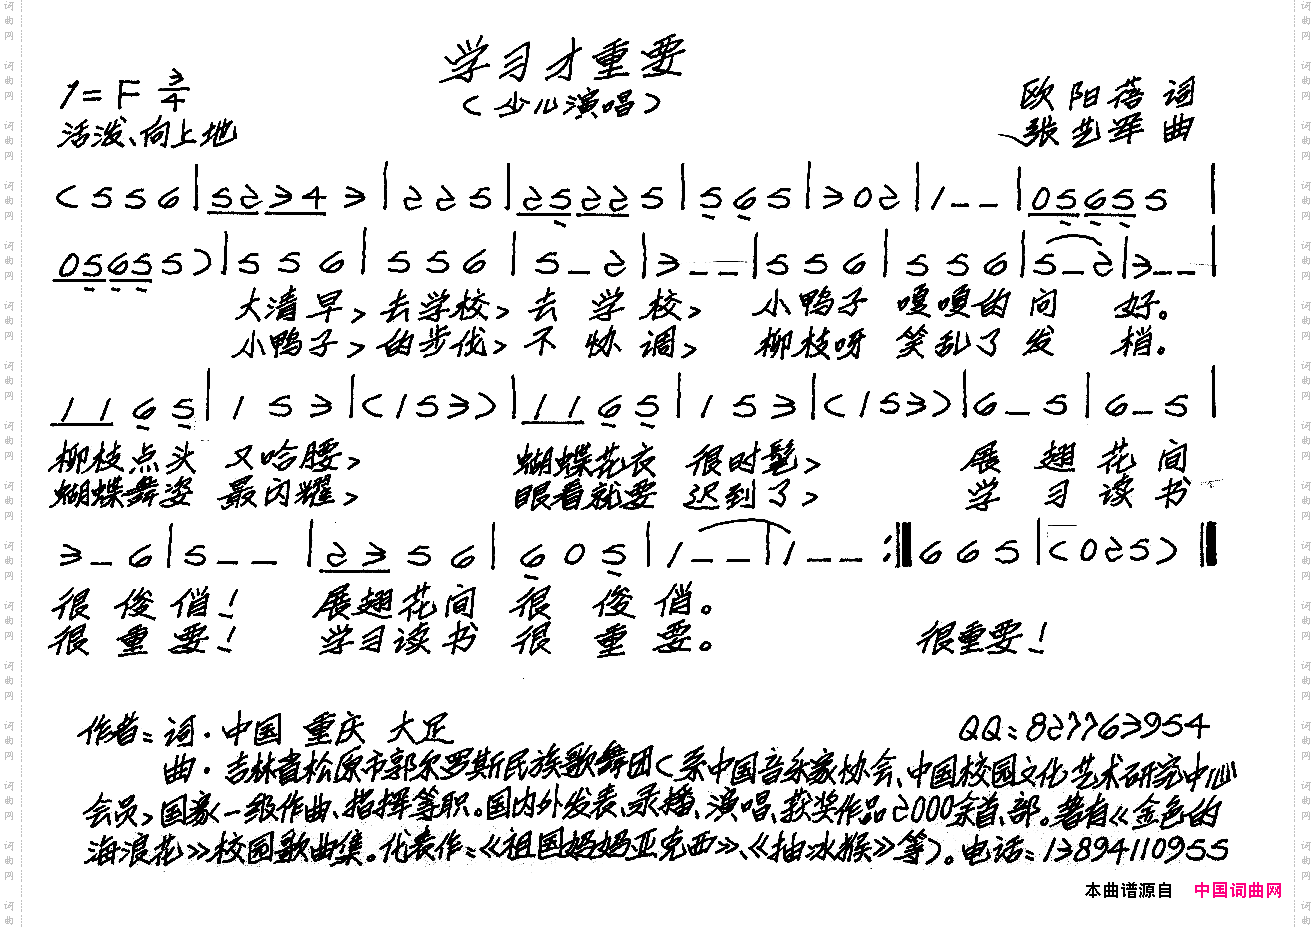 学习才重要
(少儿演唱)
1=F 3/4
活泼、向上地
欧阳蓓 词
张艺军 曲
(5 5 6|5234 3|2 2 5|2522 5|5 6 5|3 0 2|1 - -|0565 5|
0565 5)|5 5 6|5 5 6|5 - 2|3 - -|5 5 6|5 5 6|5 - 2|3 - -|
大清早,去学校,去学校,小鸭子嘎嘎的问好。
小鸭子,的步伐,不协调,柳枝呀笑乱了发梢。
11 6 5|1 5 3|(1 5 3)|11 6 5|1 5 3|(1 5 3)|6 - 5|6 - 5|
柳枝点头又哈腰,蝴蝶花衣很时髦,展翅花间
蝴蝶舞姿最闪耀,眼看就要迟到了,学习读书
3 - 6|5 - -|23 5 6|6 0 5|1 - -|1 - - :‖6 6 5|(0 2 5)‖
很俊俏!展翅花间很俊俏。
很重要!学习读书很重要。很重要!
作者:词·中国 重庆 大足 QQ:827763954
曲·吉林省松原市郭尔罗斯民族歌舞团(系中国音乐家协会、中国校园文化艺术研究中心
会员,国家一级作曲、指挥等职。国内外发表、录播、演唱、获奖作品2000余首、部。著有《金色的
海浪花》校园歌曲集。代表作:《祖国妈妈亚克西》、《抽冰猴》等)。电话:13894110955
本曲谱源自 中国词曲网